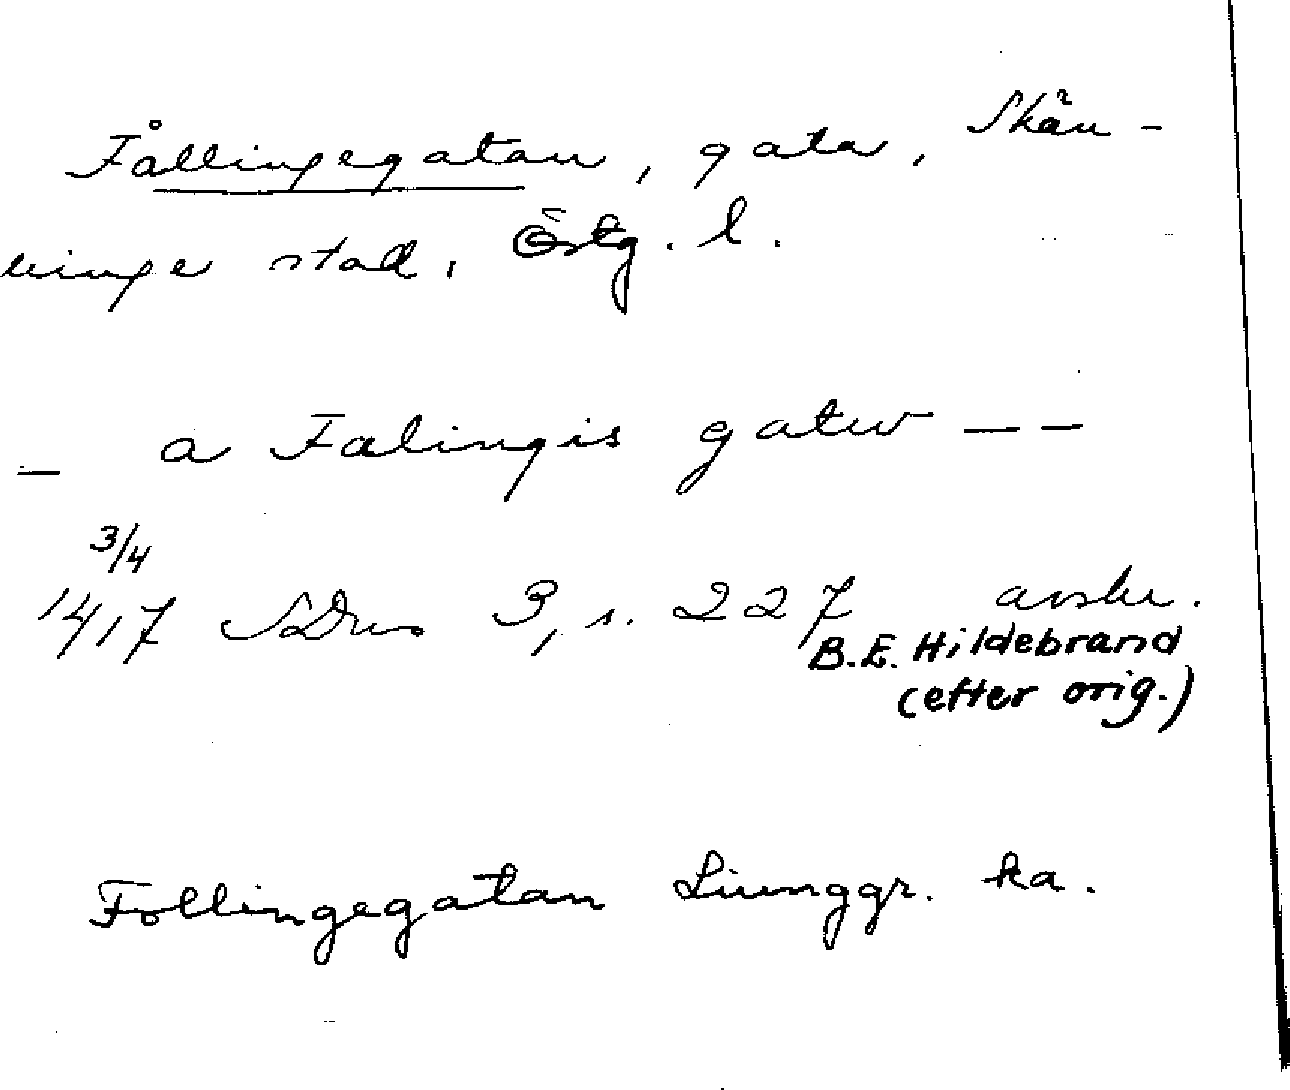 Fållingegatan, gata, Skän-
ninge stad, Östg. l.
— a Falingis gatw — —
3/4
1417 SDns 3, s. 227 avskr.
B.E. Hildebrand
(efter orig.)
Follingegatan Liunggr. ka.